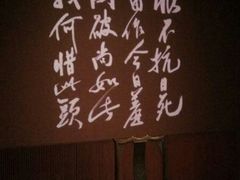 恨不抗日死
留作今日羞
國破尚如此
我何惜此頭